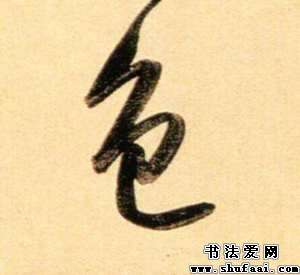 色
书法爱网
www.shufaai.com